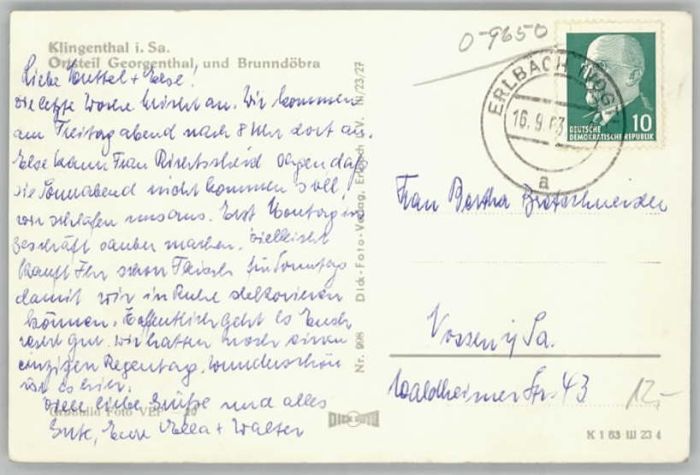 Klingenthal i. Sa.
Ortsteil Georgenthal und Brunndöbra
Liebe + Else!
die letzte Woche bricht an. Wir kommen
am Freitag abend nach 8 Uhr dort an.
Else kann Frau sagen daß
sie Sonnabend nicht kommen soll
wir schlafen uns aus. Erst Montag in
Geschäft sauber machen. Vielleicht
kauft Ihr schon Fleisch für Sonntag
damit wir in Ruhe dekorieren
können. Hoffentlich geht es Euch
recht gut. wir hatten noch einen
einzigen Regentag. Wunderschön
ist es hier.
Viele liebe Grüße und alles
Gute, Eure Ella + Walter
Foto VEB
Nr. 608 Dick-Foto-Verlag, Erlbach i. V. N/23/27
DICK FOTO
0-9650
ERLBACH (VOGTL)
16.9.63
a
10
DEUTSCHE
DEMOKRATISCHE REPUBLIK
Frau Bertha Bretschneider
Nossen i/Sa.
Waldheimer Str. 43
12,-
K 1 63 III 23 4